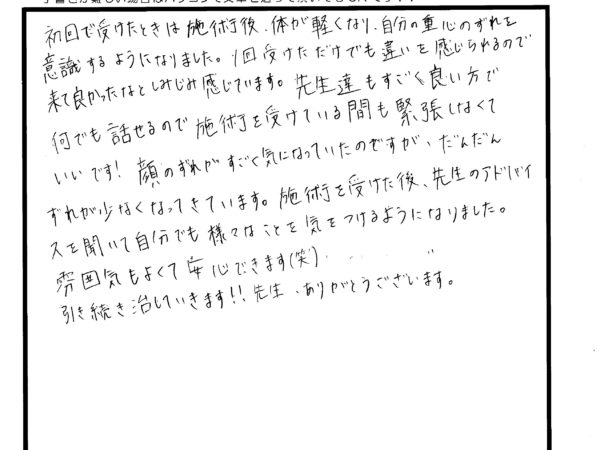 初回で受けたときは施術後、体が軽くなり、自分の重心のずれを
意識するようになりました。1回受けただけでも違いを感じられるので
来て良かったなとしみじみ感じています。先生達もすごく良い方で
何でも話せるので施術を受けている間も緊張しなくて
いいです!顔のずれがすごく気になっていたのですが、だんだん
ずれが少なくなってきています。施術を受けた後、先生のアドバイ
スを聞いて自分でも様々なことを気をつけるようになりました。
雰囲気もよくて安心できます(笑)
引き続き治していきます!!先生、ありがとうございます。